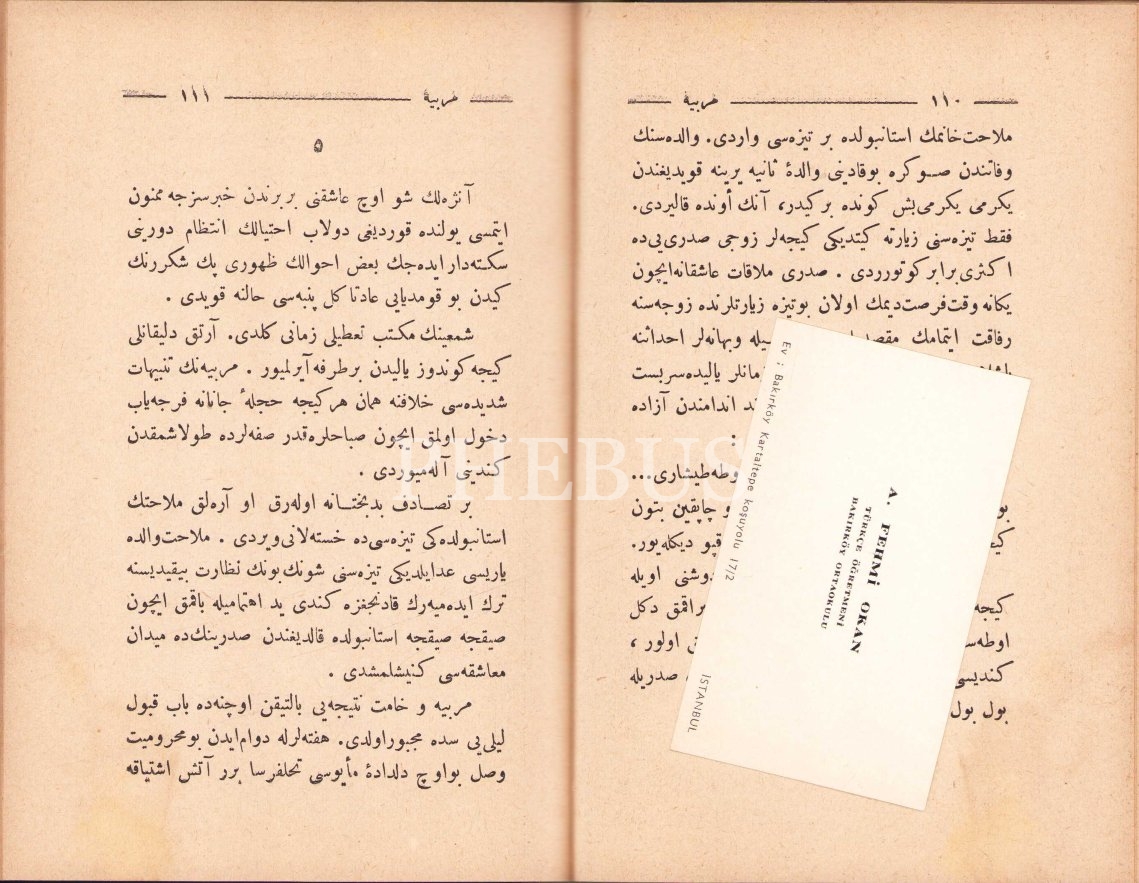 ١١٠ مربیهٔ
ملاحت‌خانمك استانبولده بر تیزه‌سی واردی. والده‌سنك
وفاتندن صـوكره بوقادینی والدهٔ ثانیه یرینه قویدیغندن
یكرمی یكرمی‌بش كونده بركیدر، آنك أونده قالیردی.
فقط تیزه‌سنی زیارته كیتدیكی كیجه‌لر زوجی صدری‌یی‌ده
اكثری‌برابر كوتورردی. صدری ملاقات عاشقانه‌ایچون
یكانه وقت‌فرصت‌دیمك اولان بوتیزه زیارتلرنده زوجه‌سنه
رفاقت ایتمامك مقصد یله وبهانه‌لر احداثنه
مانلر یالیده‌سربست
ند اندامندن آزاده
:
وطه‌طیشاری...
و چاپقین بتون
قپو دیكله‌یور.
دوشنی اویله
براقمق دكل
اوطه‌س ی اولور،
كندیسی صدریله
بول بول
A. FEHMİ OKAN
TÜRKÇE ÖĞRETMENİ
BAKIRKÖY ORTAOKULU
Ev : Bakırköy Kartaltepe Koşuyolu 17/2
İSTANBUL
مربیهٔ ١١١
٥
آنژه‌لك شو اوچ عاشقنی بربرندن خبرسزجه ممنون
ایتمسی یولنده قوردیغی دولاب احتیالك انتظام دورینی
سكته‌دار ایده‌جك بعض احوالك ظهوری پك شكررنك
كیدن بو قومدیایی عادتا كل پنبه‌سی حالنه قویدی.
شمعینك مكتب تعطیلی زمانی كلدی. آرتق دلیقانلی
كیجه كوندوز یالیدن برطرفه آیرلمیور. مربیه‌نك تنبیهات
شدیده‌سی خلافنه همان هركیجه حجلهٔ جانانه فرجه‌یاب
دخول اولمق ایچون صباحلره‌قدر صفه‌لرده طولاشمقدن
كندینی آله‌میوردی.
بر تصـادف بدبختـانه اوله‌رق او آره‌لق ملاحتك
استانبولده‌كی تیزه‌سی‌ده خسته‌لانی‌ویردی. ملاحت‌والده
یاریسی عدایلدیكی تیزه‌سنی شونك‌بونك نظارت بیقیدیسنه
ترك ایده‌میه‌رك قادنجغزه كندی ید اهتمامیله باقمق ایچون
صیقجه صیقجه استانبولده قالدیغندن صدرینك‌ده میدان
معاشقه‌سی كنیشلمشدی.
مربیه و خامت نتیجه‌یی بالتیقن اوچنه‌ده باب قبول
لیلی‌یی سده مجبوراولدی. هفته‌لرله دوام‌ایدن بومحرومیت
وصل بواوچ دلدادهٔ مأیوسی تحلفرسا برر آتش اشتیاقه
PHEBUS